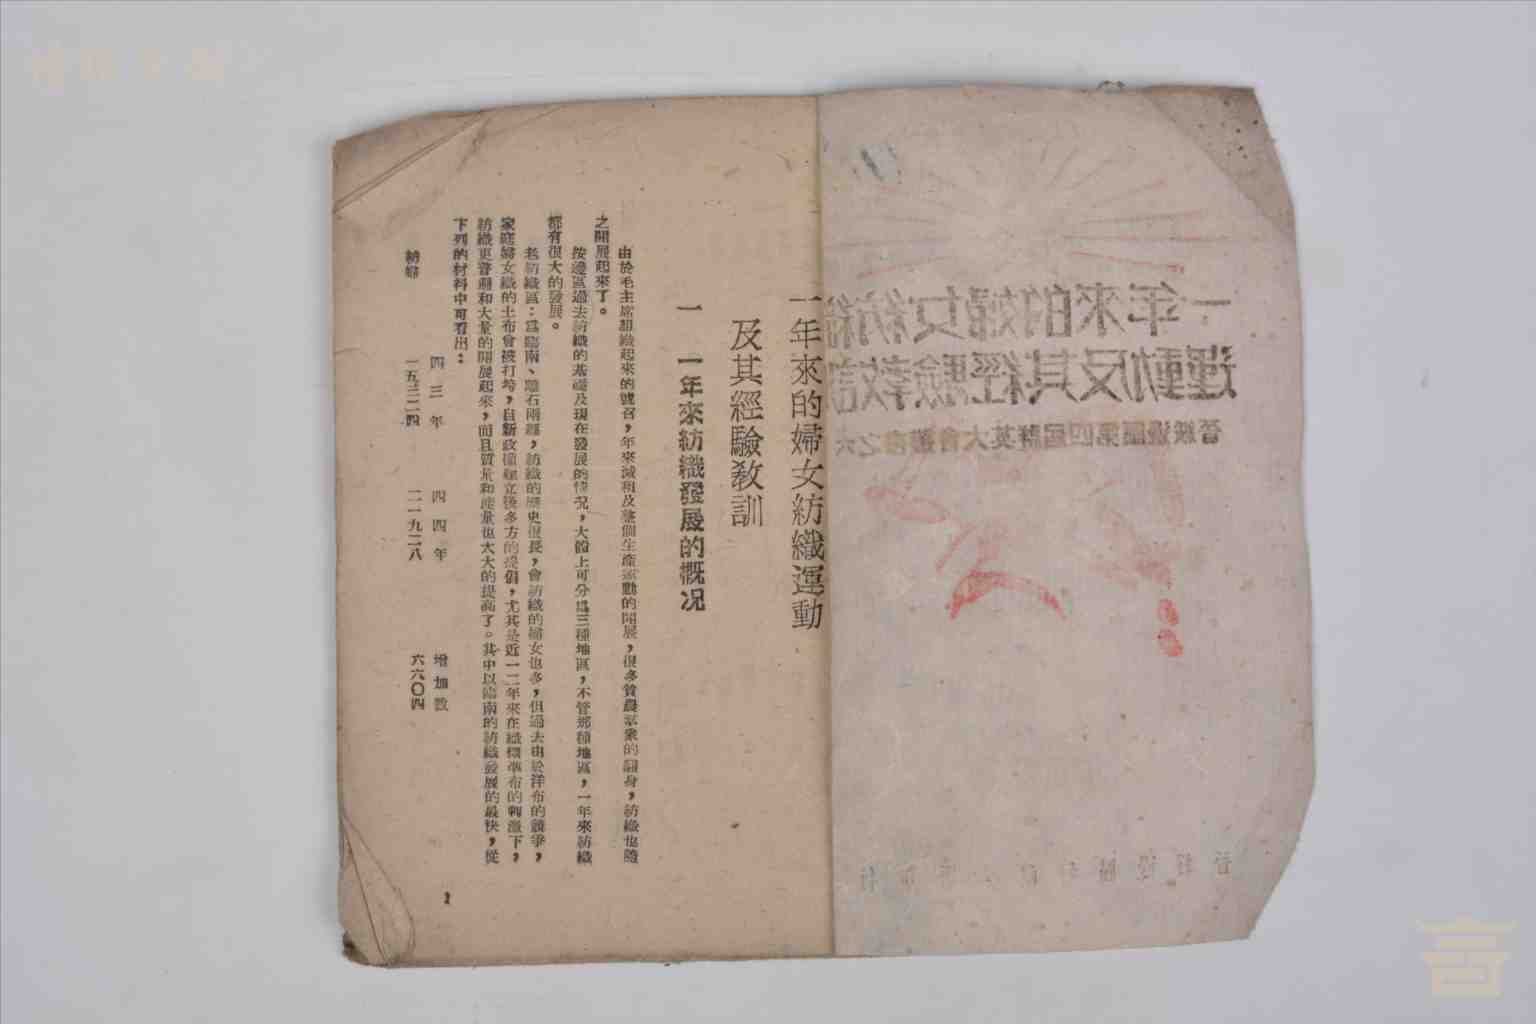 一年來的婦女紡織
運動及其經驗教訓
晉綏邊區第四屆群英大會叢書之六
一年來的婦女紡織運動
及其經驗教訓
一　一年來紡織發展的概况
由於毛主席組織起來的號召，年來減租及整個生產運動的開展，很多貧農羣衆的翻身，紡織也隨
之開展起來了。
按邊區過去紡織的基礎及現在發展的情况，大體上可分爲三種地區，不管那種地區，一年來紡織
都有很大的發展。
老紡織區：爲臨南、離石兩縣，紡織的歷史很長，會紡織的婦女也多，但過去由於洋布的競爭，
家庭婦女織的土布會被打垮，自新政權建立後多方的提倡，尤其是近一二年來在織標準布的刺激下，
紡織更普遍和大量的開展起來，而且質量和產量也大大的提高了。其中以臨南的紡織發展的最快，從
下列的材料中可看出：
四三年　四四年　增加數
紡婦　一五三二四　二一九二八　六六〇四